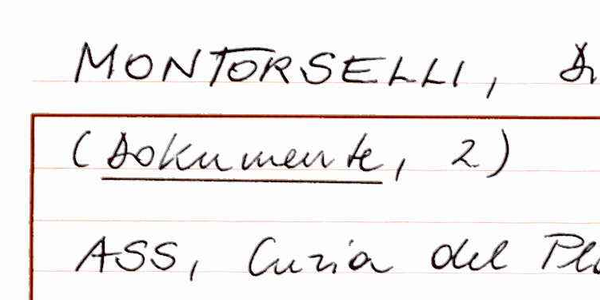 MONTORSELLI,
(Dokumente, 2)
ASS, Curia del